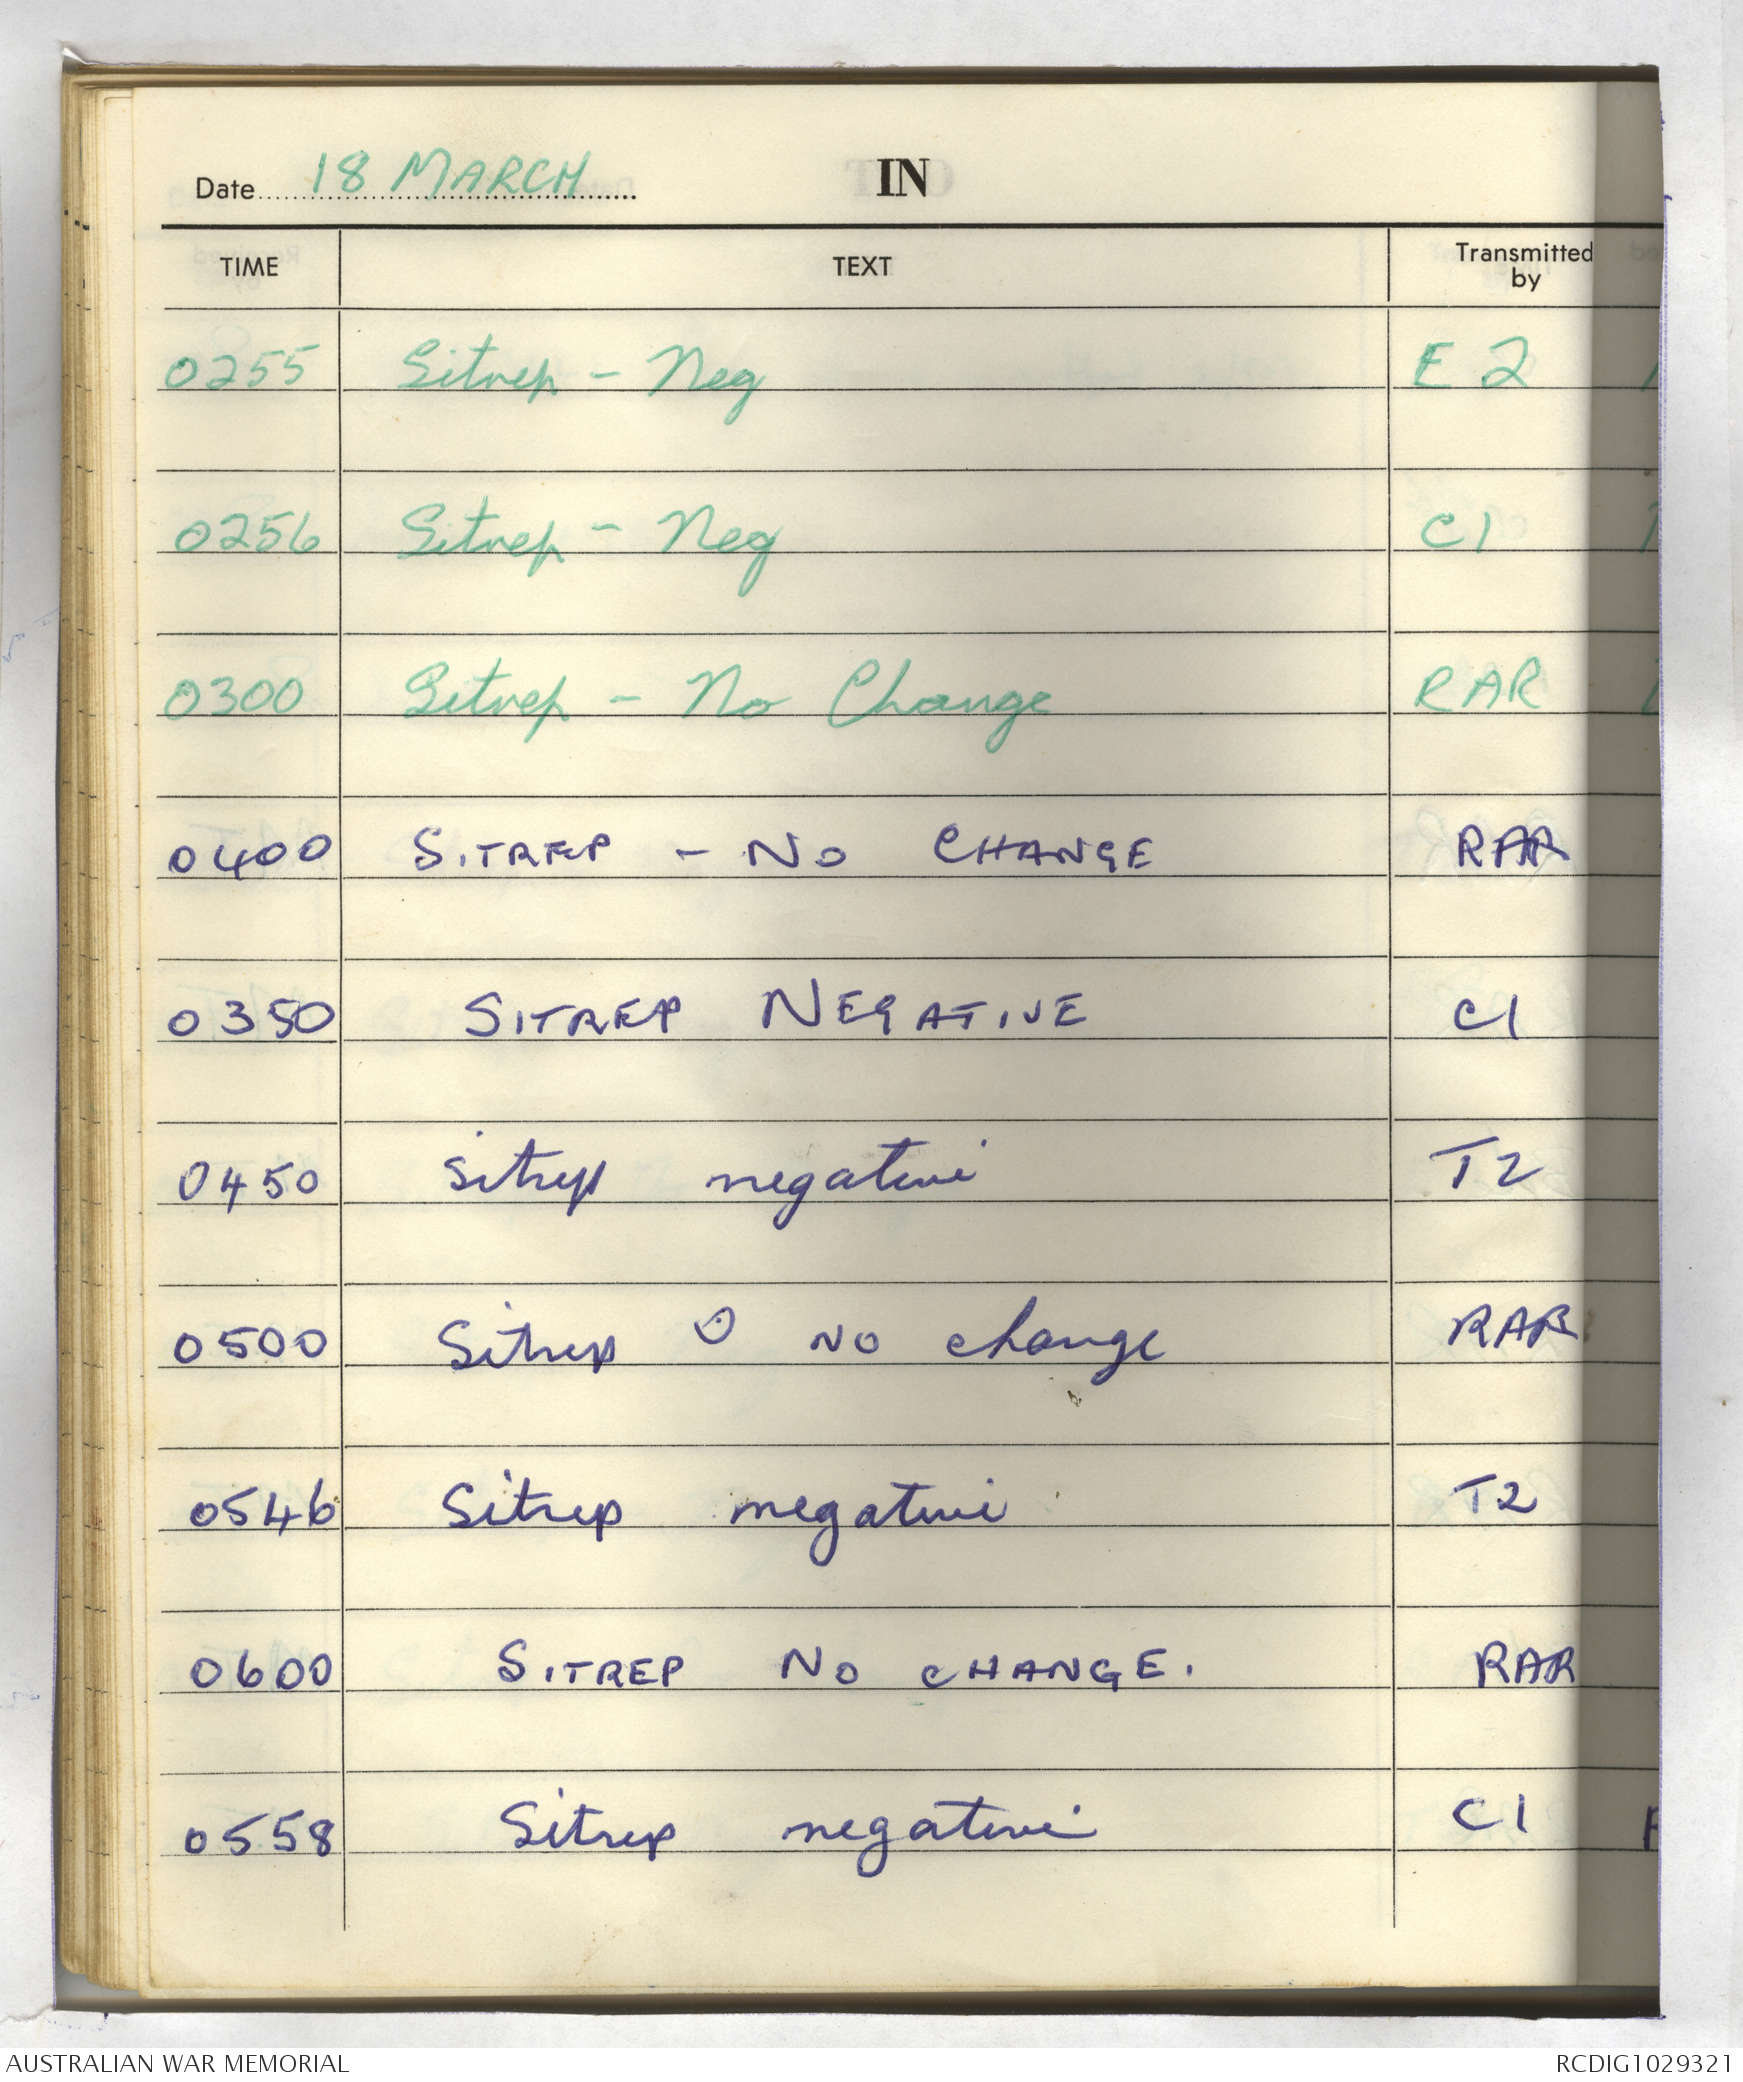 Date 18 MARCH IN
TIME TEXT Transmitted by
0255 Sitrep - Neg E2
0256 Sitrep - Neg C1
0300 Sitrep - No Change RAR
0400 SITREP - No CHANGE RAR
0350 SITREP NEGATIVE C1
0450 Sitrep negative T2
0500 Sitrep O NO change RAR
0546 Sitrep negative T2
0600 SITREP No CHANGE. RAR
0558 Sitrep negative C1
AUSTRALIAN WAR MEMORIAL RCDIG1029321